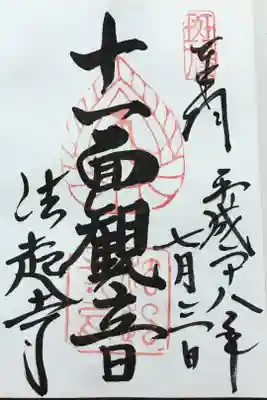 奉拝
平成二十八年
七月三一日
十一面観音
法起寺